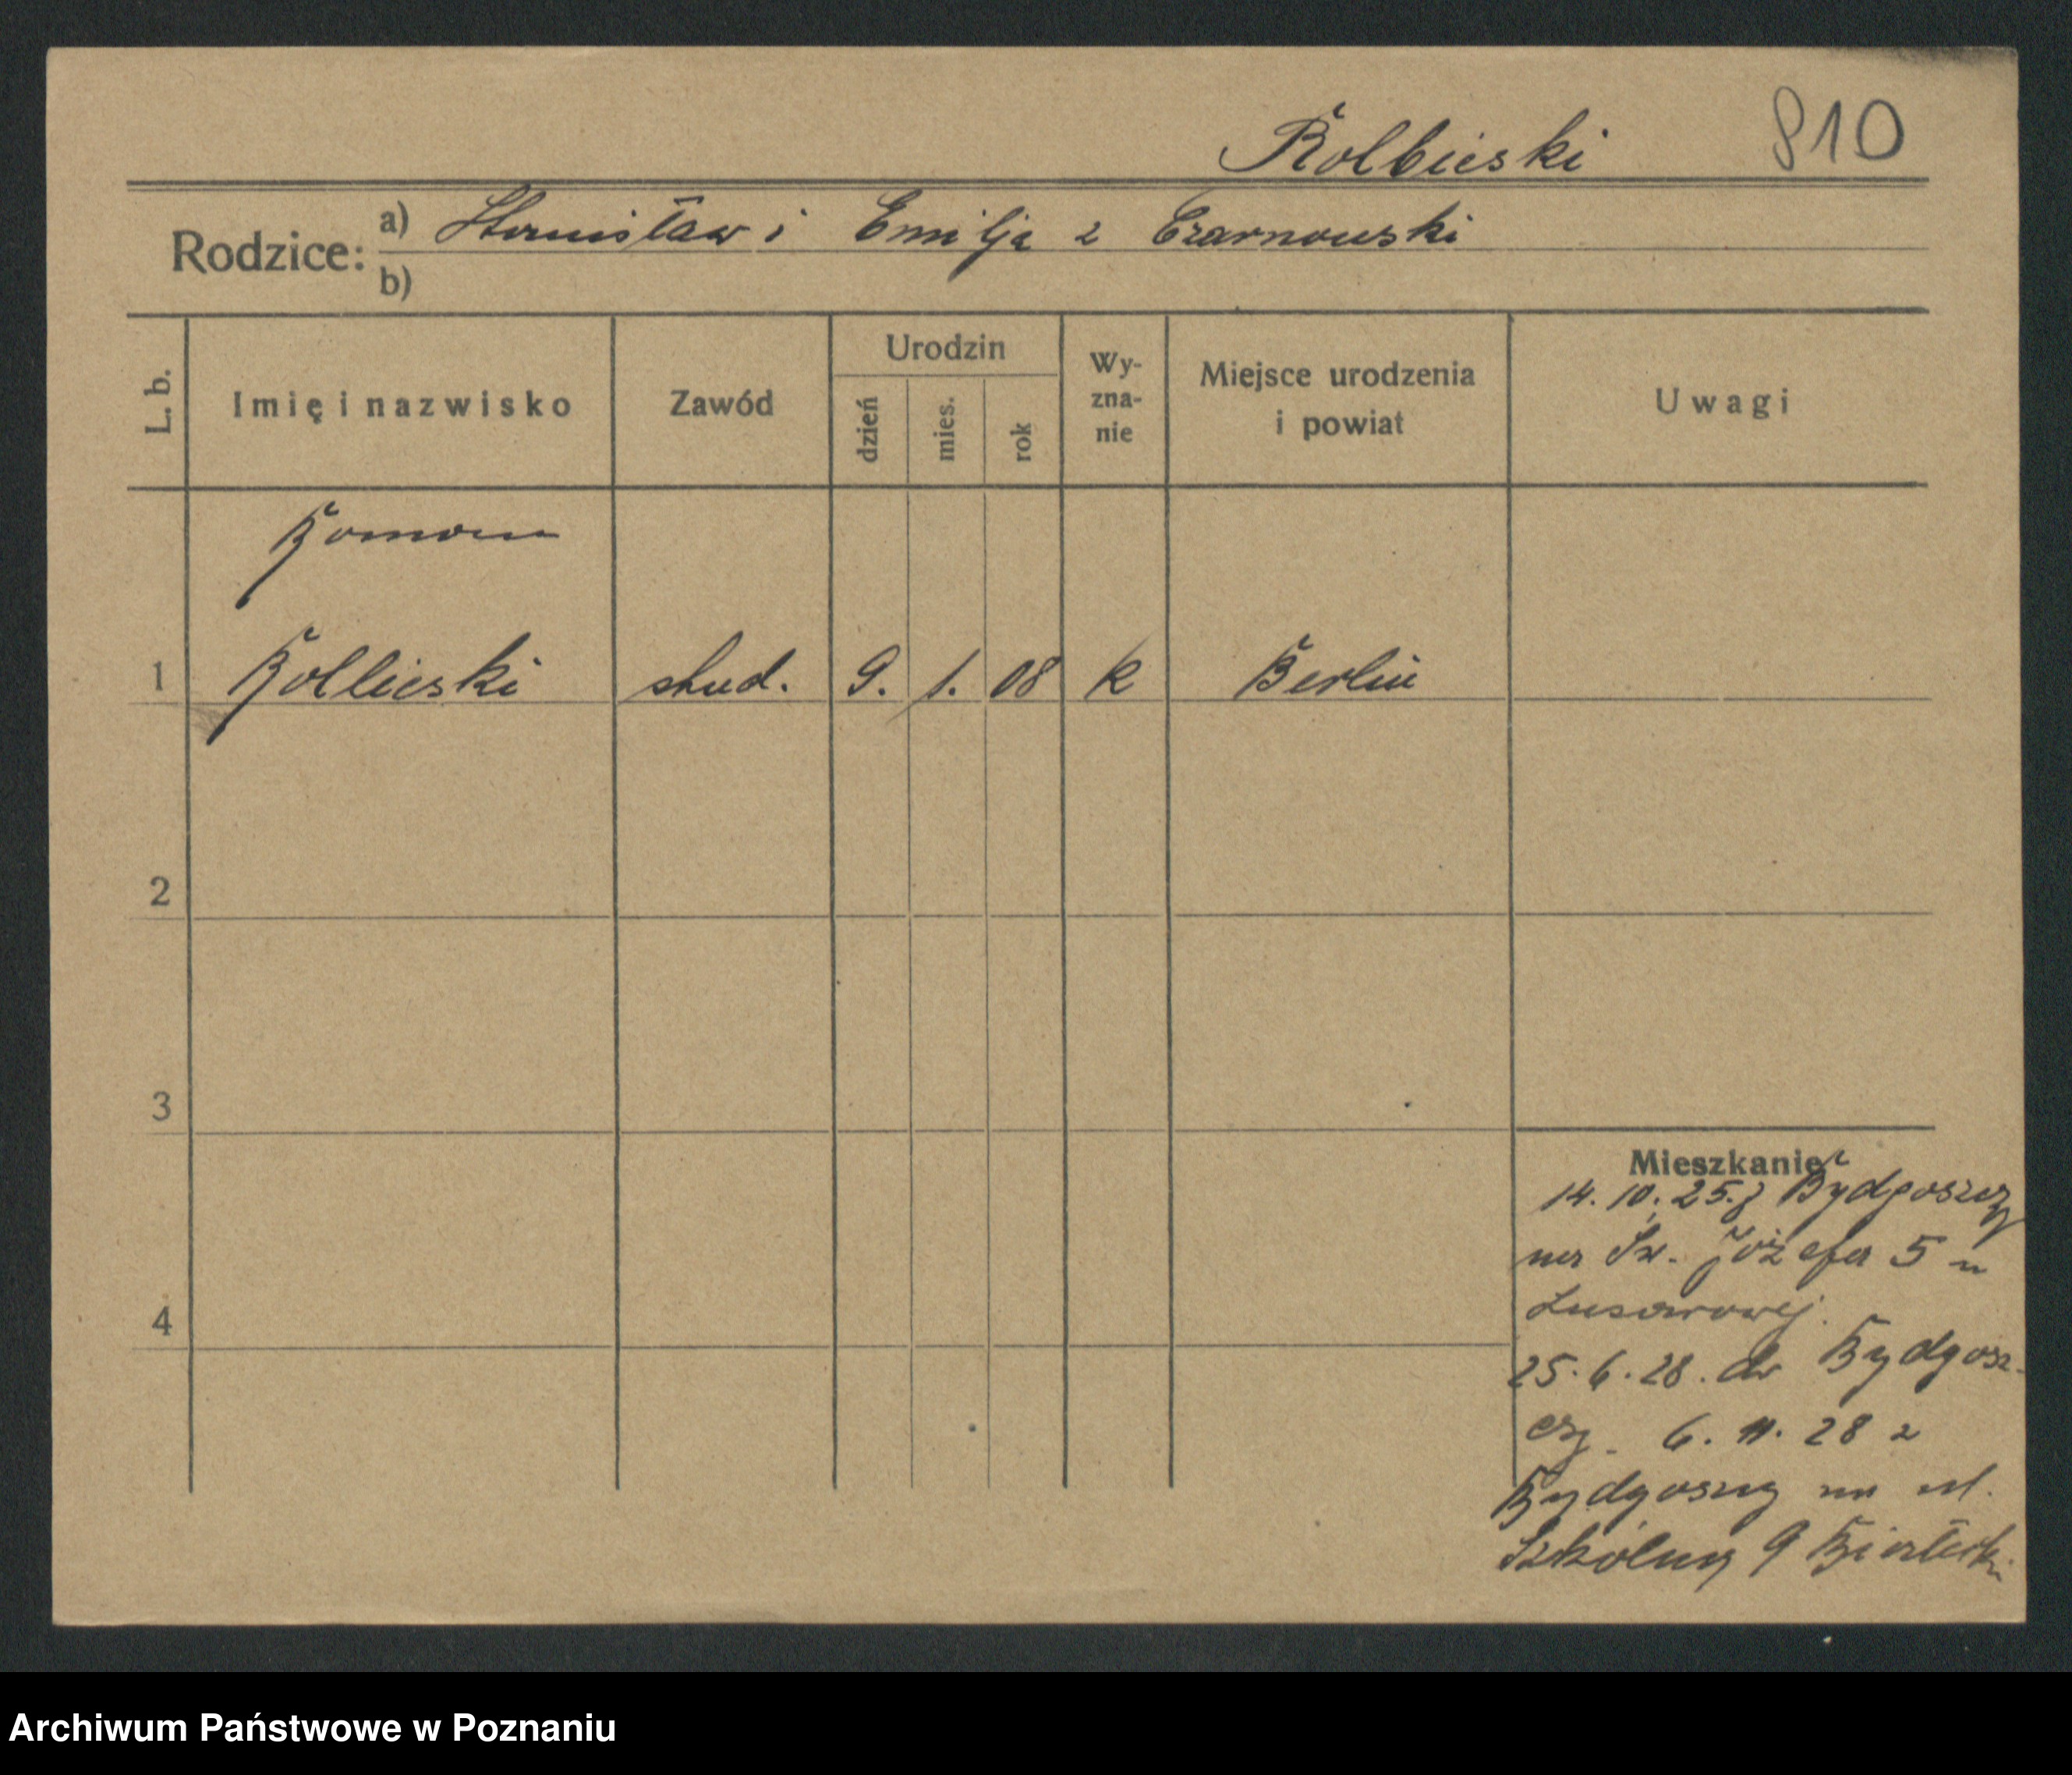 Rolbieski 810
Rodzice: a) Stanisław i Emilja z Czarnowski
b)
L. b. Imię i nazwisko Zawód Urodzin dzień mies. rok Wy-zna-nie Miejsce urodzenia i powiat Uwagi
Roman
1 Rolbieski stud. 9. 1. 08 k Berlin
2
3
Mieszkanie
14. 10. 25. z Bydgoszczy
na Św. Józefa 5 u
4
25. 6. 28. do Bydgosz-
czy. 6. 11. 28 z
Bydgoszcy na ul.
Szkolną 9
Archiwum Państwowe w Poznaniu